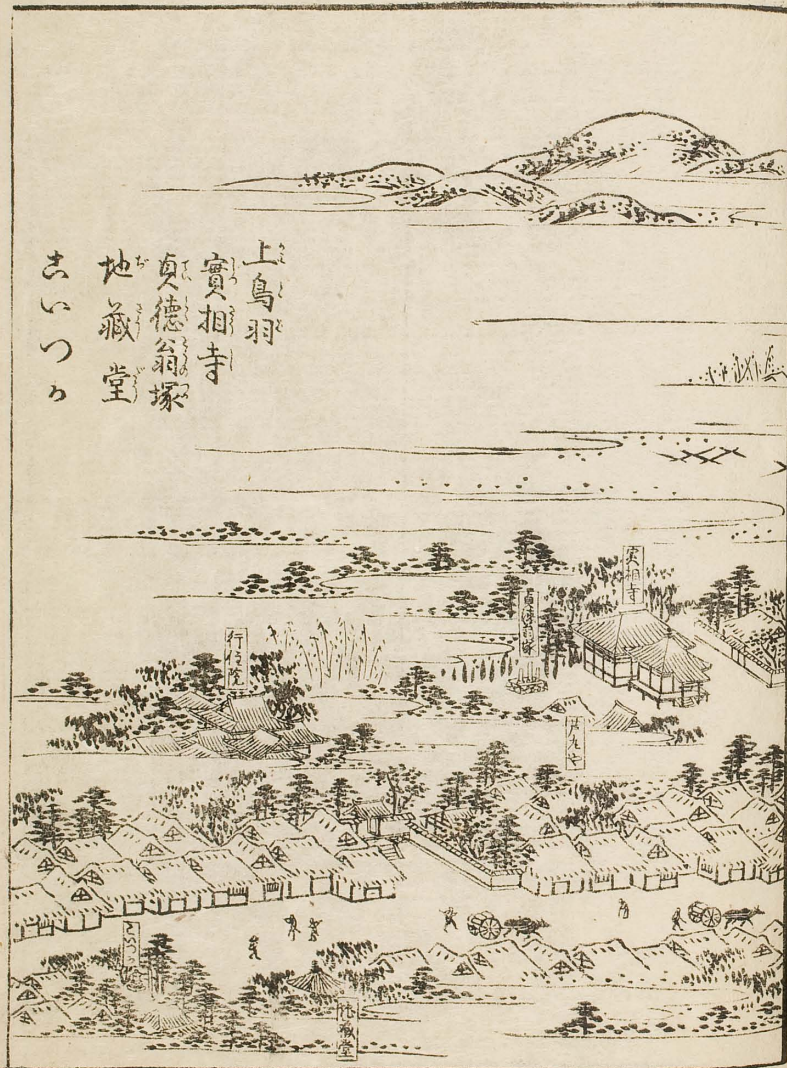 上鳥羽
實相寺
貞徳翁塚
地蔵堂
こいつか
實相寺
貞徳翁塚
行住院
芦丸や
こいつか
地蔵堂